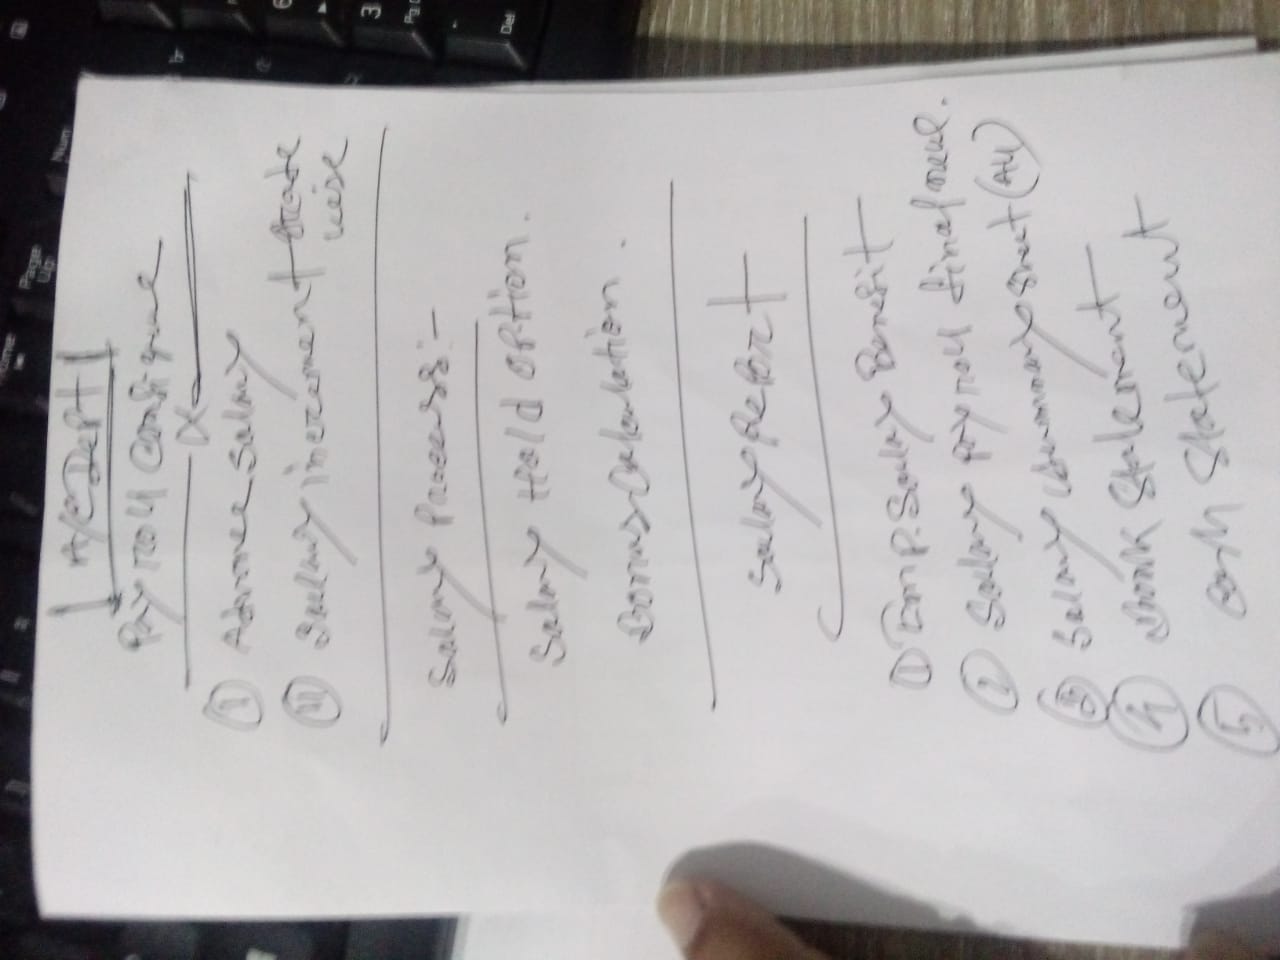 A/C Dept
Payroll Configure
① Advance Salary
Salary increment Grade
wise
Salary Process:-
Salary Hold Option.
Bonus Calculation.
Salary Report
① Emp. Salary Benefit
② Salary payroll final
③ Salary Summary Sheet (All)
④ Bank Statement
⑤ Cash Statement
Home
Page
Up
Num
6
3
Pg
Del